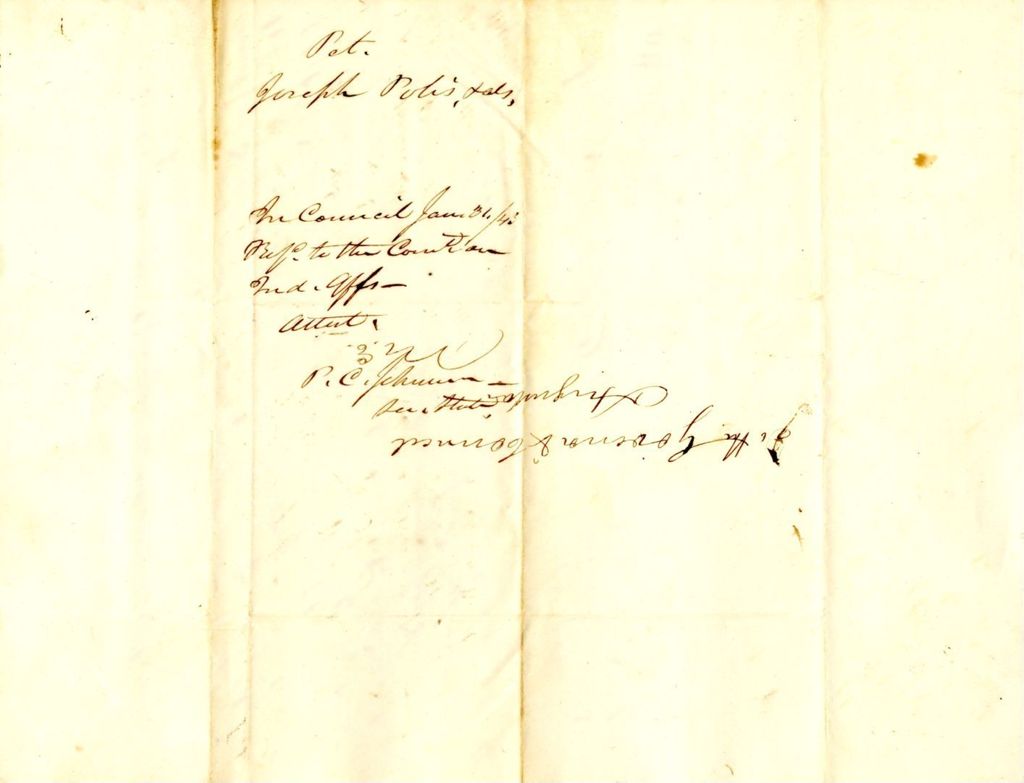 Pet.
Joseph Polis, & als,
In Council Jan. 31/43
Ref.d to the Com. on
Ind. Affs —
Attest.
P. C. Johnson —
Sec. State.
To the Governor & Council
Augusta